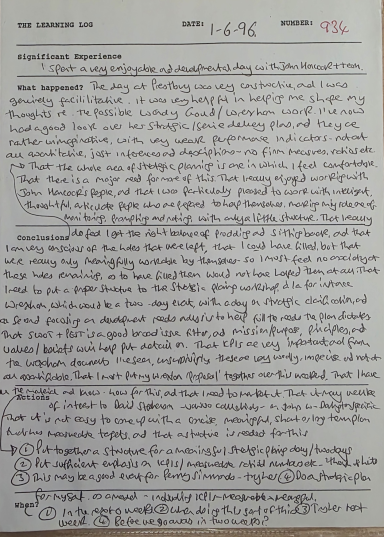 THE LEARNING LOG DATE: 1-6-96. NUMBER: 934
Significant Experience
I spent a very enjoyable and developmental day with John Hancock + team.
What happened? The day at Prestbury was very constructive, and I was
genuinely facilitative. It was very helpful in helping me shape my
thoughts re. the possible Wrexham work. I've now
had a good look over their strategic/service delivery plan, and they are
rather unimaginative, with very weak performance indicators - not at
all quantitative, just inferences and descriptions - no firm measures, ratios etc.
That the whole area of strategic planning is one in which I feel comfortable.
That there is a major need for more of this. That I really enjoyed working with
John Hancock's people, and that I was particularly pleased to work with intelligent,
thoughtful, articulate people who are prepared to help themselves, making my role one of
monitoring, prompting and with only a little structure. That I really
Conclusions do feel I got the right balance of prodding and sitting back, and that
I am very conscious of the holes that were left, that I could have filled, but that
were really only meaningfully workable by themselves - so I must feel no anxiety at
these holes remaining, as to have filled them would not have helped them at all. That
I need to put a proper structure to the strategic planning workshop I'd do for instance
Wrexham which would be a two-day event, with a day on strategic clarification, and
a second focusing on development needs to help fulfil the needs the plan dictates
That SWOT + PEST is a good broad issue filter, and mission/purpose, principles, and
values/beliefs will help put detail on. That KPIs are very important and from
the Wrexham document I've seen, these are very woolly, imprecise and not at
all quantifiable. That I must put my Wrexham 'Proposal' together over this weekend. That I have
the material and know-how for this, and that I need to market it. That it may well be
Actions of interest to David
That it is not easy to come up with a concise, meaningful, short-or-long template
measurable targets, and that a structure is needed for this
① Put together a structure for a meaningful strategic planning day/two days
② Put sufficient emphasis on KPIs/measurable
③ This may be a good event for Penny ④ Do a strategic plan
for myself - including KPIs - measurable + meaningful.
When? ① In the next 2 weeks ② When doing this sort of thing ③ 
week. ④ Before go away in two weeks?